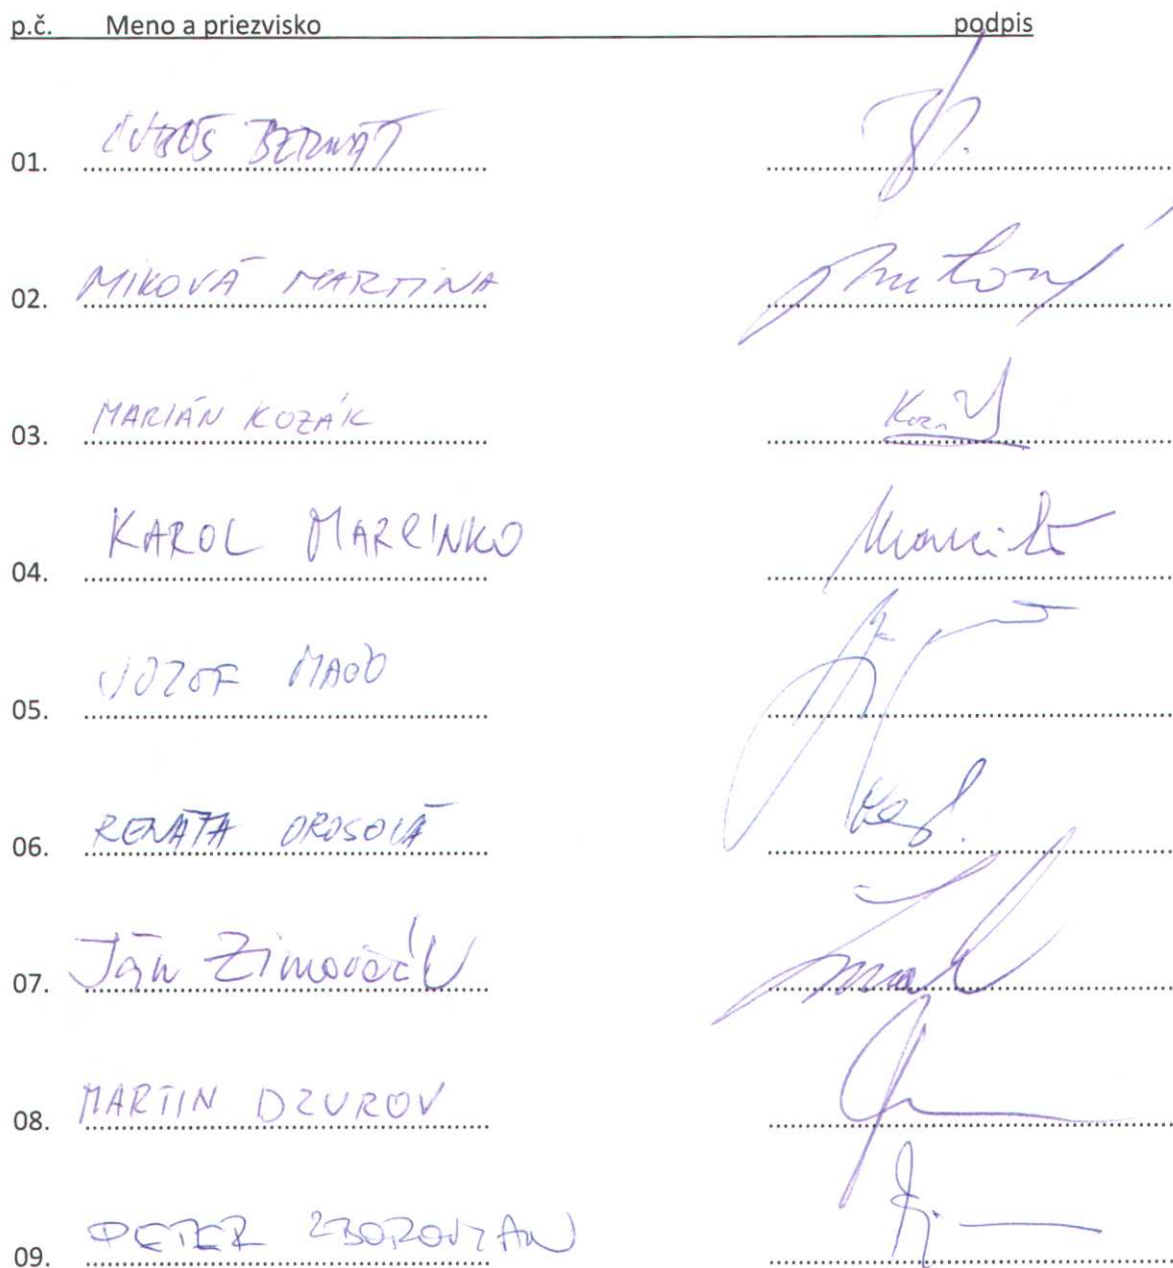 p.č. Meno a priezvisko podpis
01. ĽUBOŠ BERNÁT
02. MIKOVÁ MARTINA
03. MARIÁN KOZÁK
04. KAROL MARCINKO
05. JOZEF
06. RENÁTA OROSOVÁ
07. Ján Zimovčák
08. MARTIN DZUROV
09. PETER ZBOROVJAN